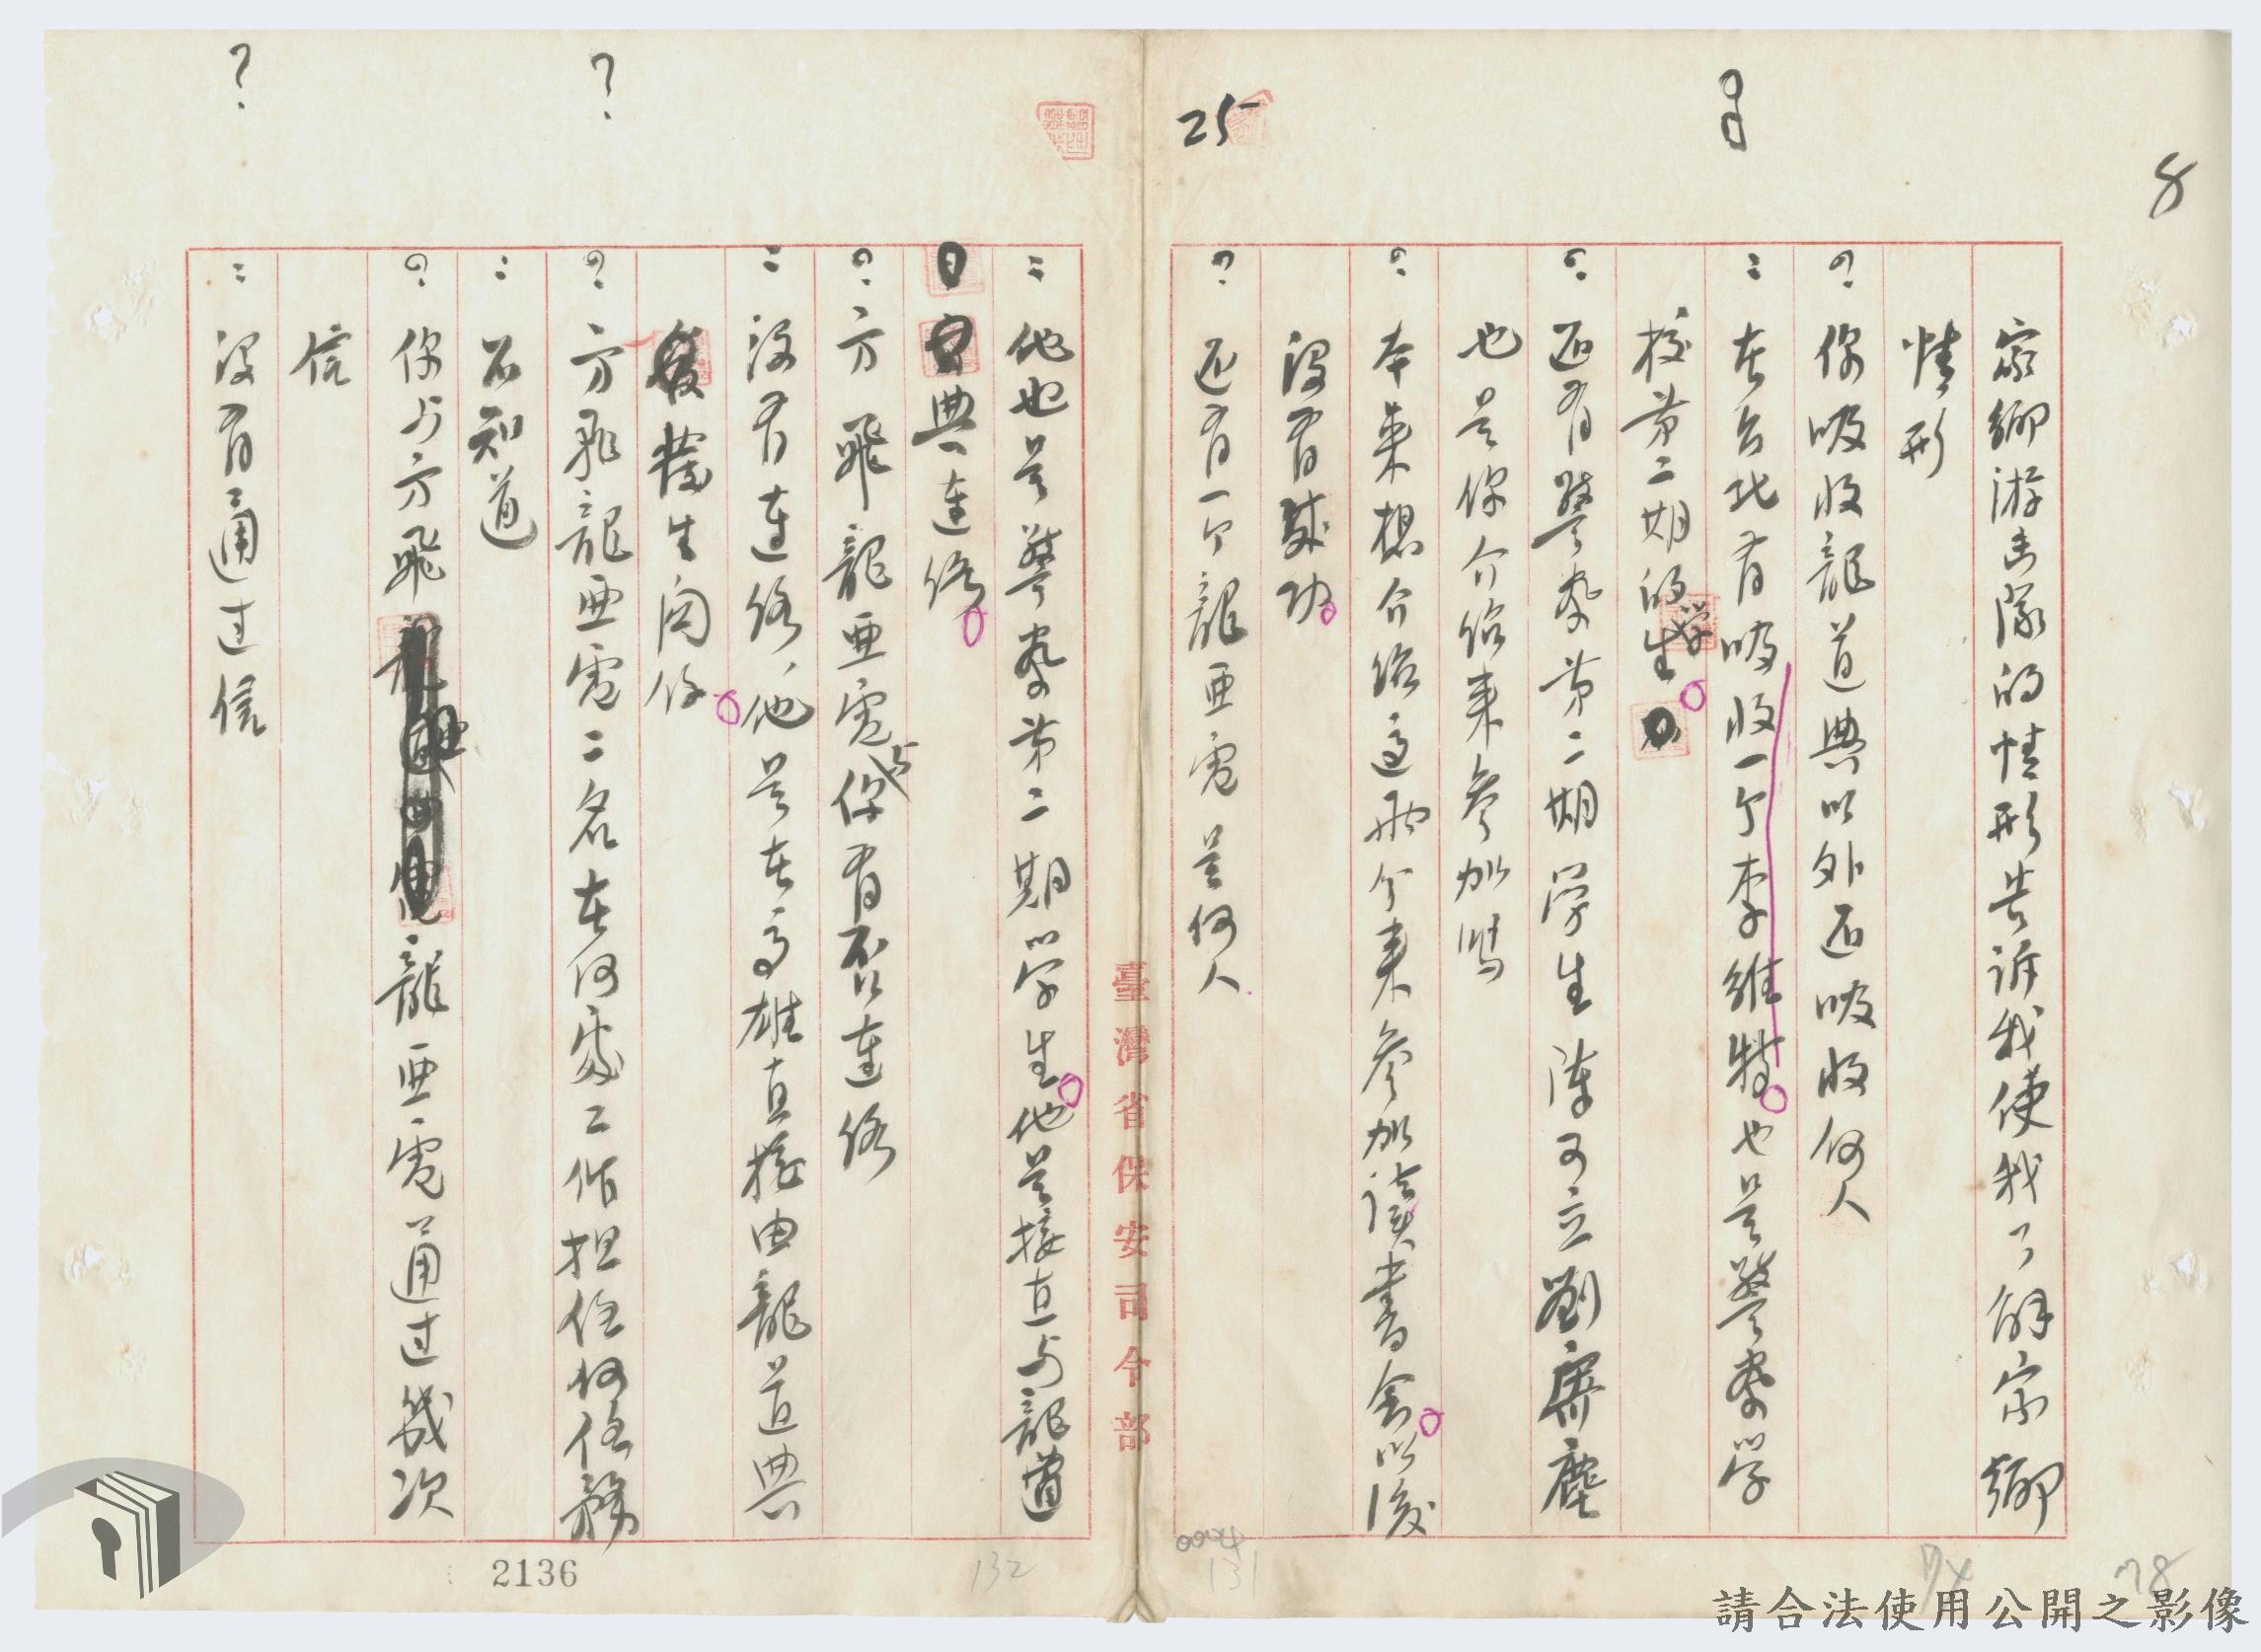 8
家鄉游击隊的情形告訴我使我了解家鄉
情形
? 你吸收龍道典以外还吸收何人
: 在台北有吸收一个李維特也是警察学
校第二期的学生
? 还有警察第二期学生陳可立劉齋塵
也是你介紹來參加嗎
? 本來想介紹這兩个來參加讀書会以後
沒有成功
? 还有一个龍亜雹是何人
25
: 他也是警察第二期学生他是接直与龍道
典連絡
? 方飛龍亜雹与你有否連絡
: 沒有連絡,他是在高雄直接由龍道典
發生関係
? 方飛龍亜雹二名在何處工作担任何任務
: 不知道
? 你与方飛龍亜雹通过幾次
信
: 沒有通过信
?
?
臺灣省保安司令部
0004
131
132
2136
78
請合法使用公開之影像